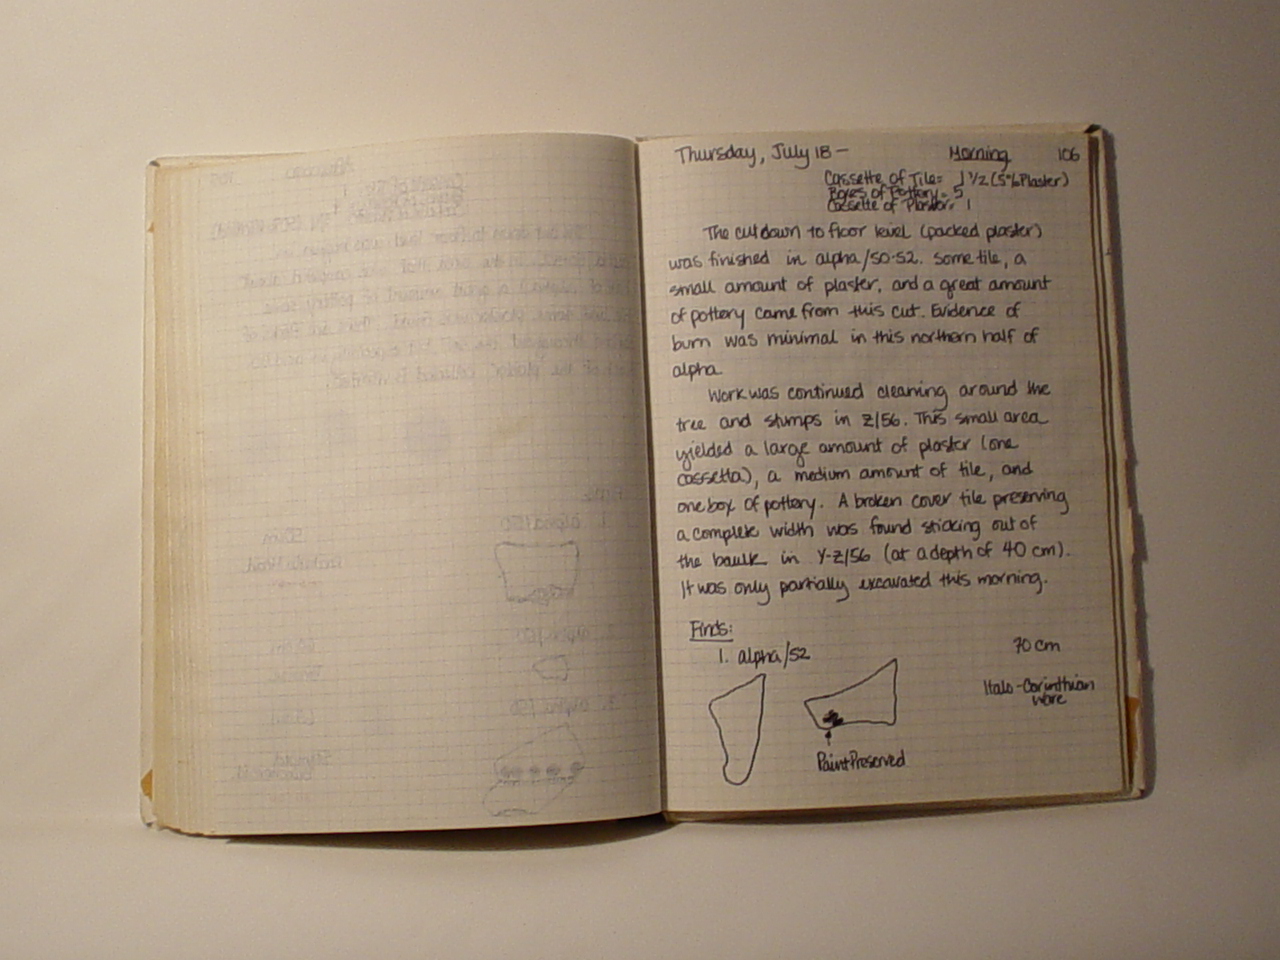 Thursday, July 18 — Morning 106
Cassette of Tile= 1 1/2 (5% Plaster)
Boxes of Pottery= 5
Cassette of Plaster= 1
The cut down to floor level (packed plaster)
was finished in alpha/50-52. Some tile, a
small amount of plaster, and a great amount
of pottery came from this cut. Evidence of
burn was minimal in this northern half of
alpha.
Work was continued cleaning around the
tree and stumps in Z/56. This small area
yielded a large amount of plaster (one
cassetta), a medium amount of tile, and
one box of pottery. A broken cover tile preserving
a complete width was found sticking out of
the baulk in Y-Z/56 (at a depth of 40 cm).
It was only partially excavated this morning.
Finds:
1. alpha/52 70 cm
Italo-Corinthian
ware
Paint Preserved